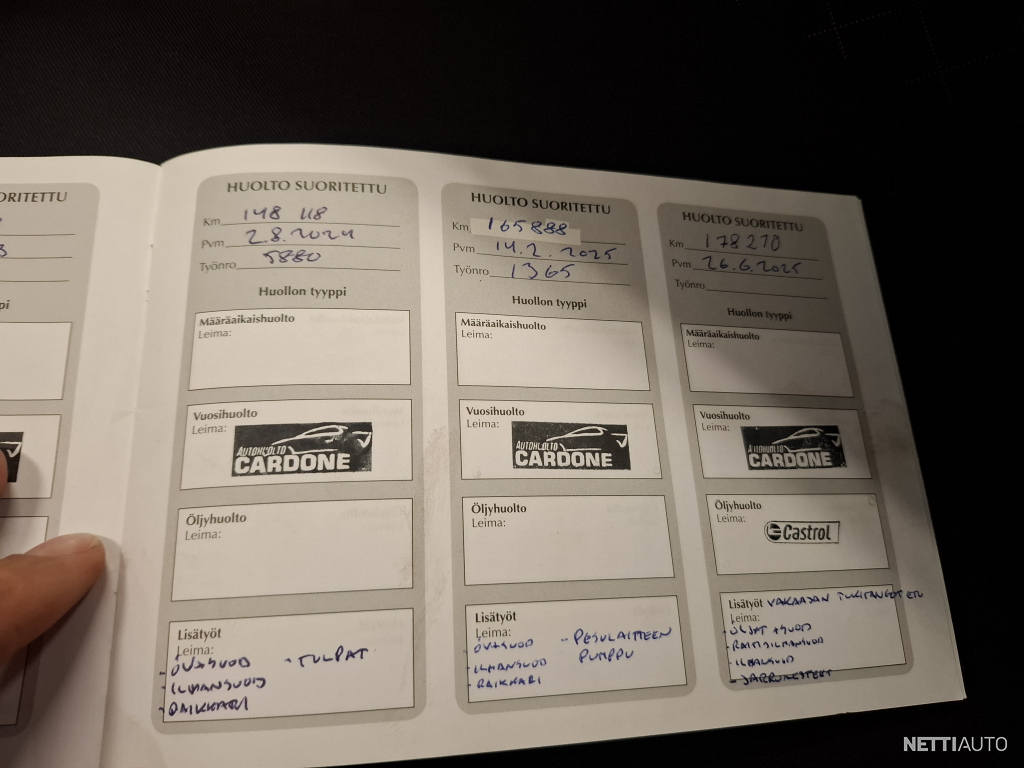 ORITETTU
HUOLTO SUORITETTU
Km 148 118
Pvm 2.8.2024
Työnro 5880
Huollon tyyppi
Määräaikaishuolto
Leima:
Vuosihuolto
Leima:
AUTOHUOLTO
CARDONE
Öljyhuolto
Leima:
Lisätyöt
Leima:
- ÖV+SUOD - TULPAT
- ILMANSUOD
- RAIKKARI
HUOLTO SUORITETTU
Km 165888
Pvm 14.2.2025
Työnro 1365
Huollon tyyppi
Määräaikaishuolto
Leima:
Vuosihuolto
Leima:
AUTOHUOLTO
CARDONE
Öljyhuolto
Leima:
Lisätyöt
Leima:
- ÖV+SUOD - PESULAITTEEN
- ILMANSUOD PUMPPU
- RAIKKARI
HUOLTO SUORITETTU
Km 178270
Pvm 26.6.2025
Työnro
Huollon tyyppi
Määräaikaishuolto
Leima:
Vuosihuolto
Leima:
AUTOHUOLTO
CARDONE
Öljyhuolto
Leima:
Castrol
Lisätyöt VAKAAJAN TUKITANGOT ETU
Leima:
- ÖLJYT +SUOD
- RAITISILMANSUOD
- ILMANSUOD
- JARRUNESTEET
NETTIAUTO